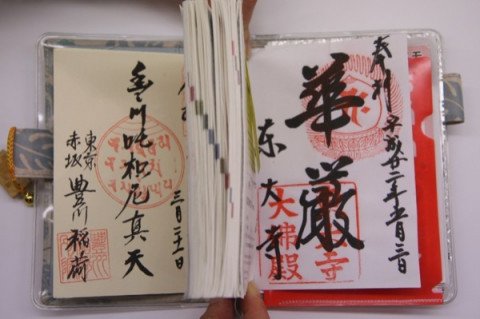 奉拝 平成廿二年五月三日
華厳
東大寺
大佛殿
三月二十一日
豊川吒枳尼真天
東京
赤坂
豊川稲荷